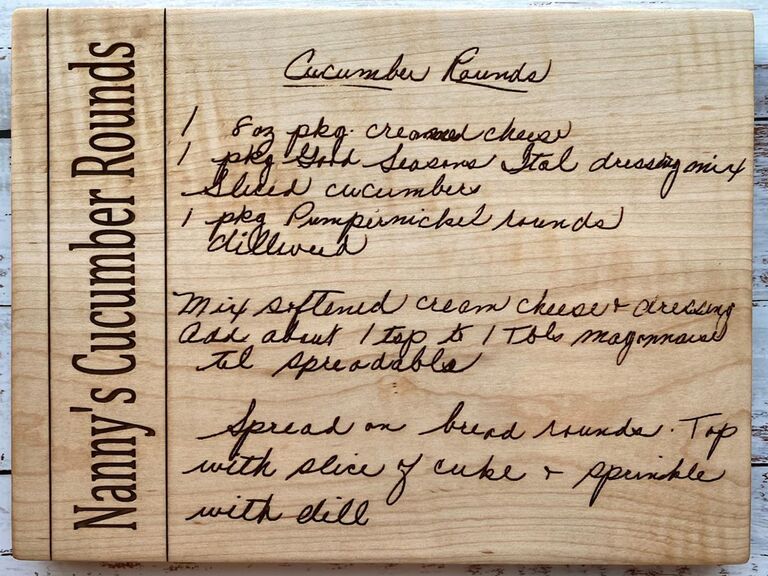 Nanny's Cucumber Rounds
Cucumber Rounds
1 8 oz pkg. creamed cheese
1 pkg Good Seasons Ital dressing mix
Sliced cucumbers
1 pkg Pumpernickel rounds
dillweed
Mix softened cream cheese + dressing
Add about 1 tsp to 1 Tbls mayonnaise
til spreadable
Spread on bread rounds. Top
with slice of cuke + sprinkle
with dill